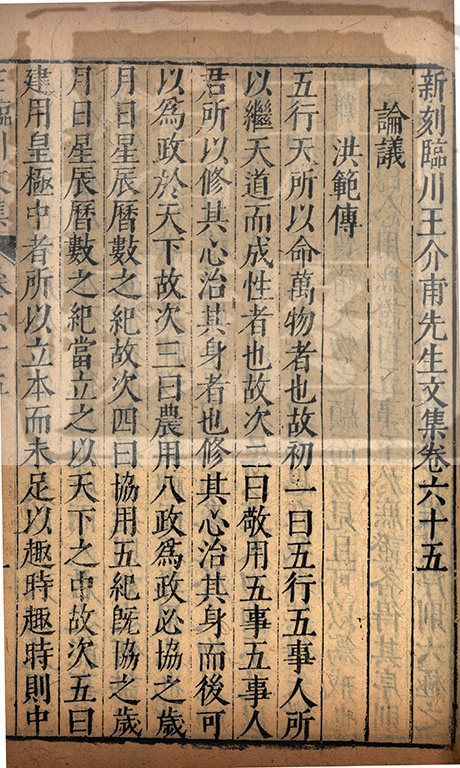 新刻臨川王介甫先生文集卷六十五
論議
洪範傳
五行天所以命萬物者也故初一曰五行五事人所
以繼天道而成性者也故次二曰敬用五事五事人
君所以修其心治其身者也修其心治其身而後可
以為政於天下故次三曰農用八政為政必協之歲
月日星辰曆數之紀故次四曰協用五紀既協之歲
月日星辰曆數之紀當立之以天下之中故次五曰
建用皇極中者所以立本而未足以趣時趣時則中